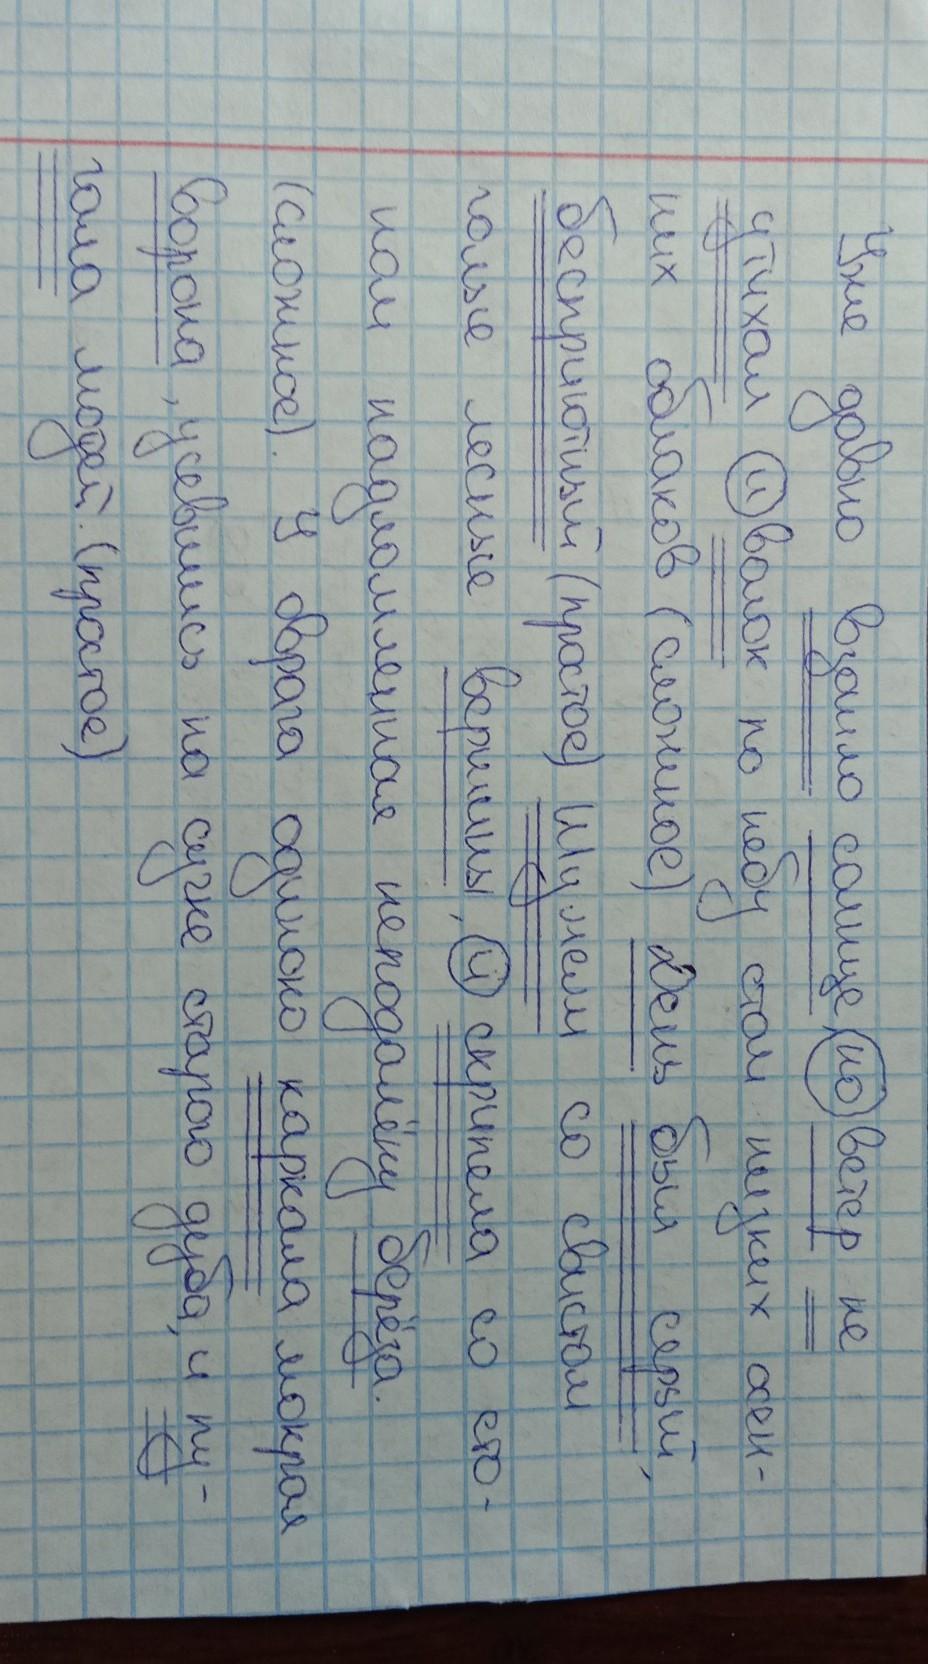 Уже давно взошло солнце, но ветер не
утихал и волок по небу стаи низких осен-
них облаков (сложное) День был серый,
бесприютный (простое) Шумели со свистом
голые лесные вершины, и скрипела со сто-
ном надломленная неподалёку берёза.
(сложное). У оврага одиноко каркала мокрая
ворона, усевшись на сучке старого дуба, и пу-
гала людей. (простое)